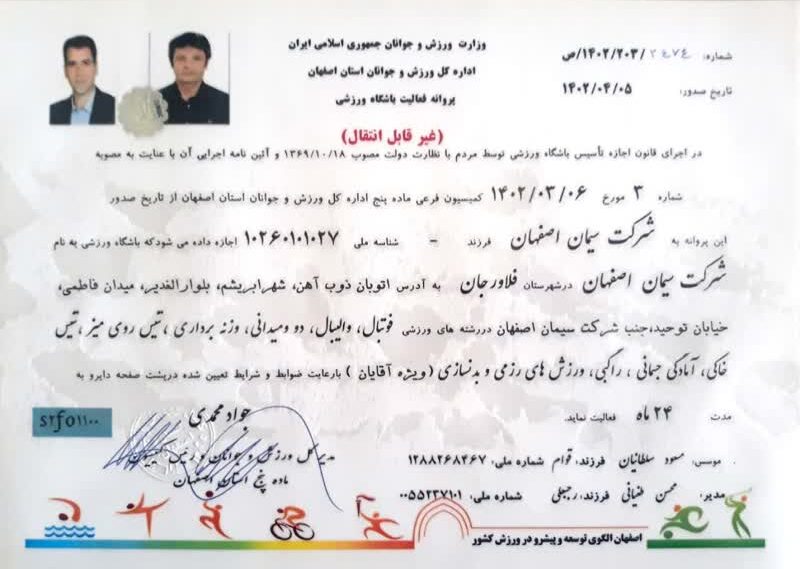 وزارت ورزش و جوانان جمهوری اسلامی ایران
اداره کل ورزش و جوانان استان اصفهان
پروانه فعالیت باشگاه ورزشی
شماره: ۲۴۷۴/۱۴۰۲/۲۰۳/ص
تاریخ صدور: ۱۴۰۲/۰۴/۰۵
(غیر قابل انتقال)
در اجرای قانون اجازه تأسیس باشگاه ورزشی توسط مردم با نظارت دولت مصوب ۱۳۶۹/۱۰/۱۸ و آئین نامه اجرایی آن با عنایت به مصوبه
شماره ۳ مورخ ۱۴۰۲/۰۳/۰۶ کمیسیون فرعی ماده پنج اداره کل ورزش و جوانان استان اصفهان از تاریخ صدور
این پروانه به شرکت سیمان اصفهان فرزند - شناسه ملی ۱۰۲۶۰۱۰۱۰۲۷ اجازه داده می شود که باشگاه ورزشی به نام
شرکت سیمان اصفهان درشهرستان فلاورجان به آدرس اتوبان ذوب آهن، شهرابریشم، بلوارالغدیر، میدان فاطمی،
خیابان توحید،جنب شرکت سیمان اصفهان دررشته های ورزشی فوتبال، والیبال، دو ومیدانی، وزنه برداری ، تنیس روی میز ، تنیس
خاکی، آمادگی جسمانی ، راگبی، ورزش های رزمی و بدنسازی (ویژه آقایان ) بارعایت ضوابط و شرایط تعیین شده درپشت صفحه دایرو به
مدت ۲۴ ماه فعالیت نماید.
جواد محمدی
s2fo1100
مدیر کل ورزش و جوانان و رئیس کمیسیون
ماده پنج استان اصفهان
موسس: مسعود سلطانیان فرزند: قوام شماره ملی: ۱۲۸۸۲۶۸۲۶۷
مدیر: محسن فرزند: رجبعلی شماره ملی: ۰۰۵۵۲۳۷۱۰۱
اصفهان الگوی توسعه و پیشرو در ورزش کشور